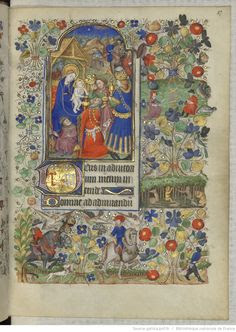 Deus in adiutori
um meum in
tende
Domine ad adiuvandū
Source gallica.bnf.fr / Bibliothèque nationale de France